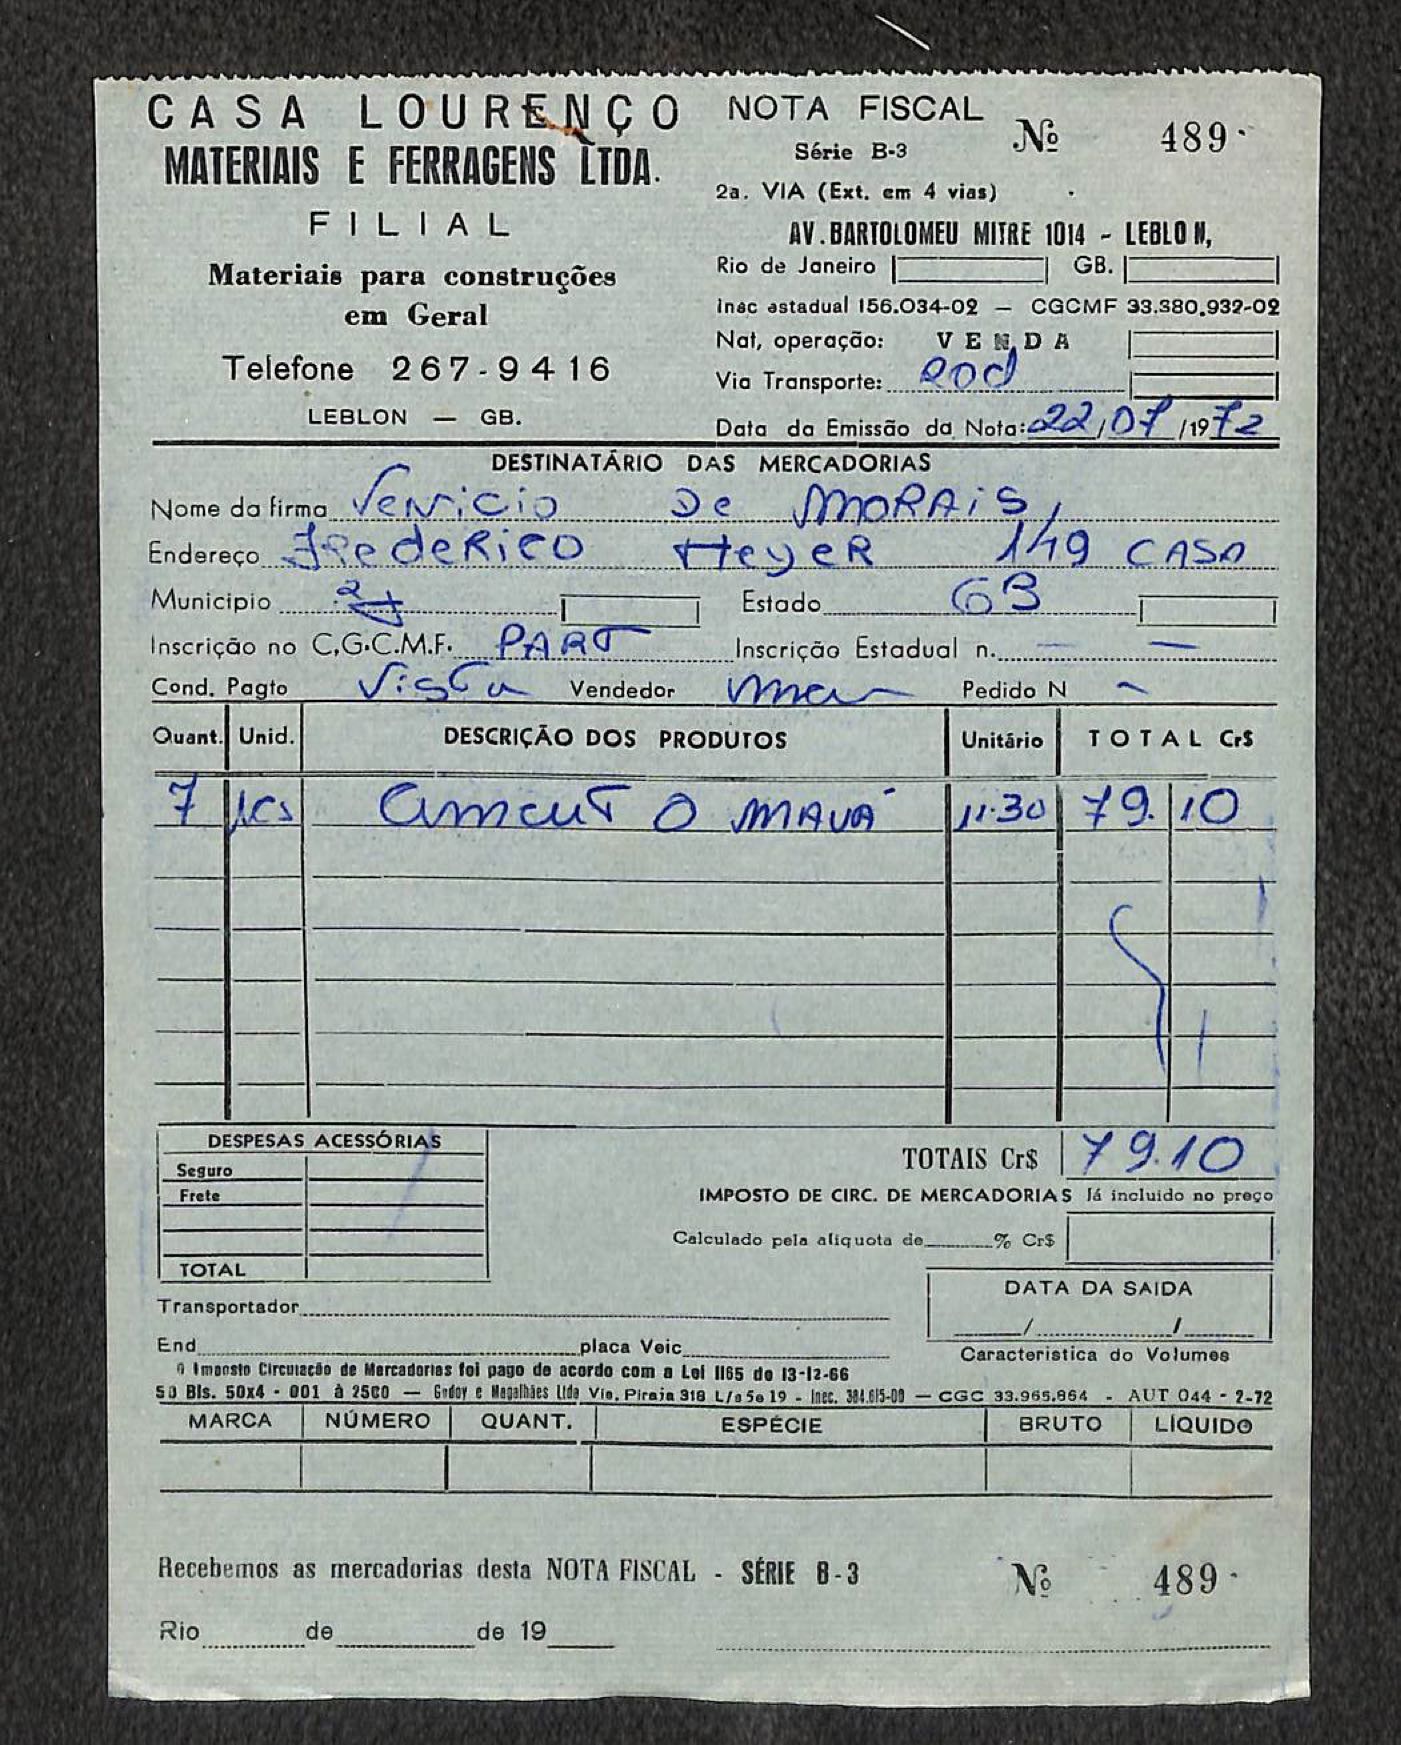 CASA LOURENÇO
MATERIAIS E FERRAGENS LTDA.
FILIAL
Materiais para construções
em Geral
Telefone 267-9416
LEBLON — GB.
NOTA FISCAL Nº 489
Série B-3
2a. VIA (Ext. em 4 vias)
AV. BARTOLOMEU MITRE 1014 - LEBLON,
Rio de Janeiro GB.
Insc estadual 156.034-02 — CGCMF 33.380.932-02
Nat, operação: VENDA
Via Transporte: ROD
Data da Emissão da Nota: 22/07/1972
DESTINATÁRIO DAS MERCADORIAS
Nome da firma Venicio De MORAiS,
Endereço Frederico Meyer 149 CASA
Municipio Estado GB
Inscrição no C.G.C.M.F. PART Inscrição Estadual n. — —
Cond. Pagto Vista Vendedor Pedido N -
Quant. Unid. DESCRIÇÃO DOS PRODUTOS Unitário TOTAL Cr$
7 MAUÁ 11.30 79.10
DESPESAS ACESSÓRIAS
Seguro
Frete
TOTAL
TOTAIS Cr$ 79.10
IMPOSTO DE CIRC. DE MERCADORIAS Já incluido no preço
Calculado pela aliquota de % Cr$
DATA DA SAIDA
/ /
Transportador
End placa Veic
Caracteristica do Volumes
O Imposto Circulação de Mercadorias foi pago de acordo com a Lei 1165 de 13-12-66
50 Bls. 50x4 - 001 à 2500 — Godoy e Magalhães Ltda Vis. Piraja 318 L/a 5e 19 - Insc. 384.615-00 — CGC 33.965.864 - AUT 044 - 2-72
MARCA NÚMERO QUANT. ESPÉCIE BRUTO LÍQUIDO
Recebemos as mercadorias desta NOTA FISCAL - SÉRIE B-3 Nº 489
Rio de de 19